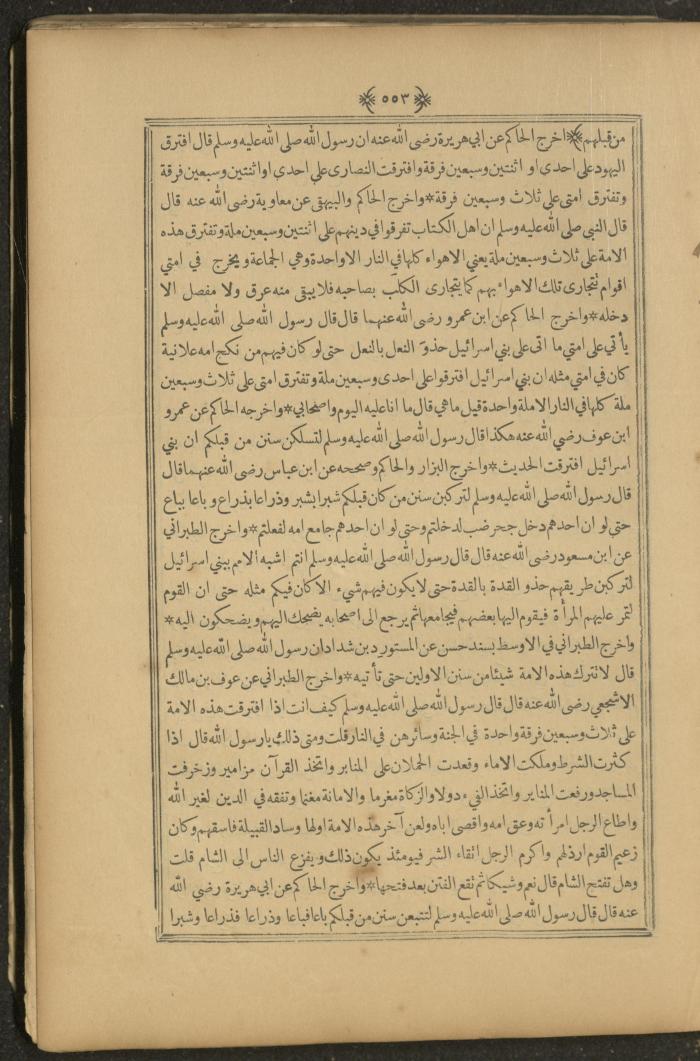 ٥٥٣
من قبلهم اخرج الحاكم عن ابي هريرة رضى الله عنه ان رسول الله صلى الله عليه وسلم قال افترق
اليهود على احدى او اثنتين وسبعين فرقة وافترقت النصارى على احدى او اثنتين وسبعين فرقة
وتفترق امتى على ثلاث وسبعين فرقة * واخرج الحاكم والبيهقى عن معاوية رضى الله عنه قال
قال النبي صلى الله عليه وسلم ان اهل الكتاب تفرقوا في دينهم على اثنتين وسبعين ملة وتفترق هذه
الامة على ثلاث وسبعين ملة يعني الاهواء كلها في النار الا واحدة وهي الجماعة ويخرج في امتي
اقوام تتجارى تلك الاهواء بهم كما يتجارى الكلب بصاحبه فلا يبقى منه عرق ولا مفصل الا
دخله * واخرج الحاكم عن ابن عمرو رضى الله عنهما قال قال رسول الله صلى الله عليه وسلم
يأتي على امتي ما اتى على بني اسرائيل حذو النعل بالنعل حتى لو كان فيهم من نكح امه علانية
كان في امتي مثله ان بني اسرائيل افترقوا على احدى وسبعين ملة وتفترق امتى على ثلاث وسبعين
ملة كلها في النار الا ملة واحدة قيل ما هي قال ما انا عليه اليوم واصحابي * واخرجه الحاكم عن عمرو
ابن عوف رضي الله عنه هكذا قال رسول الله صلى الله عليه وسلم لتسلكن سنن من قبلكم ان بني
اسرائيل افترقت الحديث * واخرج البزار والحاكم وصححه عن ابن عباس رضى الله عنهما قال
قال رسول الله صلى الله عليه وسلم لتركبن سنن من كان قبلكم شبرا بشبر وذراعا بذراع وباعا بباع
حتى لو ان احدهم دخل جحر ضب لدخلتم وحتى لو ان احدهم جامع امه لفعلتم * واخرج الطبراني
عن ابن مسعود رضى الله عنه قال قال رسول الله صلى الله عليه وسلم انتم اشبه الامم ببني اسرائيل
لتركبن طريقهم حذو القدة بالقدة حتى لا يكون فيهم شيء الا كان فيكم مثله حتى ان القوم
لتمر عليهم المرأة فيقوم اليها بعضهم فيجامعها ثم يرجع الى اصحابه يضحك اليهم ويضحكون اليه *
واخرج الطبراني في الاوسط بسند حسن عن المستورد بن شداد ان رسول الله صلى الله عليه وسلم
قال لا تترك هذه الامة شيئا من سنن الاولين حتى تأتيه * واخرج الطبراني عن عوف بن مالك
الاشجعي رضى الله عنه قال قال رسول الله صلى الله عليه وسلم كيف انت اذا افترقت هذه الامة
على ثلاث وسبعين فرقة واحدة في الجنة وسائرهن في النار قلت ومتى ذلك يا رسول الله قال اذا
كثرت الشرط وملكت الاماء وقعدت الحملان على المنابر واتخذ القرآن مزامير وزخرفت
المساجد ورفعت المنابر واتخذ الفيء دولا والزكاة مغرما والامانة مغنما وتفقه في الدين لغير الله
واطاع الرجل امرأته وعق امه واقصى اباه ولعن آخر هذه الامة اولها وساد القبيلة فاسقهم وكان
زعيم القوم ارذلهم واكرم الرجل اتقاء الشر فيومئذ يكون ذلك ويفزع الناس الى الشام قلت
وهل تفتح الشام قال نعم وشيكا ثم تقع الفتن بعد فتحها * واخرج الحاكم عن ابي هريرة رضي الله
عنه قال قال رسول الله صلى الله عليه وسلم لتتبعن سنن من قبلكم باعا فباعا وذراعا فذراعا وشبرا